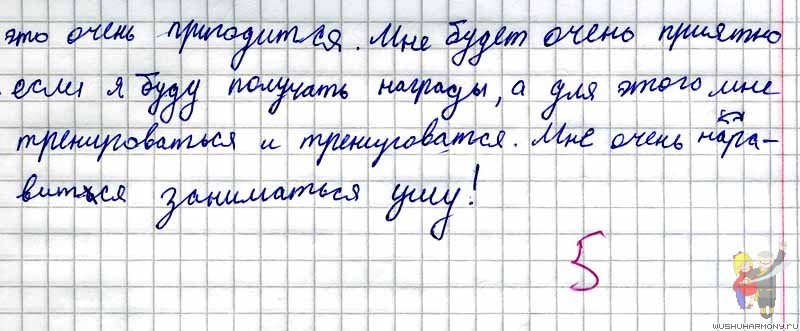 это очень пригодится. Мне будет очень приятно
если я буду получать награды, а для этого мне
тренироваться и тренироватся. Мне очень нара-
виться заниматься ушу!
5
WUSHUHARMONY.RU